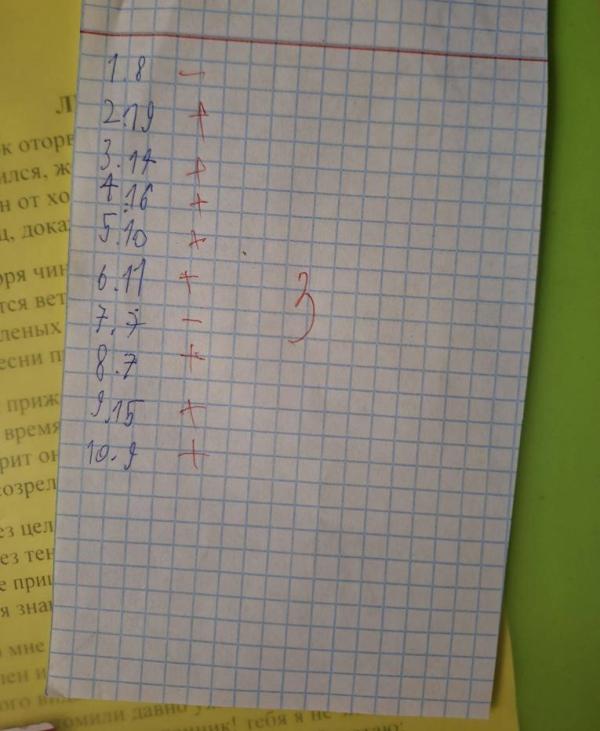 1. 8 –
2. 19 +
3. 14 +
4. 16 +
5. 10 +
6. 11 +
7. 7 –
8. 7 +
9. 15 +
10. 9 +
3
к оторв
ился, ж
н от хо
ц, дока
оря чин
тся вет
леных
есни п
прижа
время
рит он
созрел
ез цел
ез тен
е при
я зна
мне
лен и
ого вид
томили давно уж
тебя я не